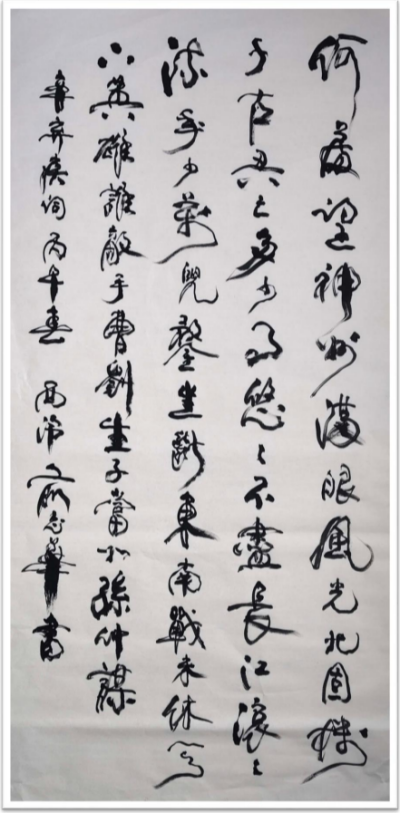 何處望神州滿眼風光北固樓
千古興亡多少事悠〻不盡長江滾〻
流年少萬兜鍪坐斷東南戰未休天
下英雄誰敵手曹劉生子當如孫仲謀
辛弃疾詞 丙午春 志華書